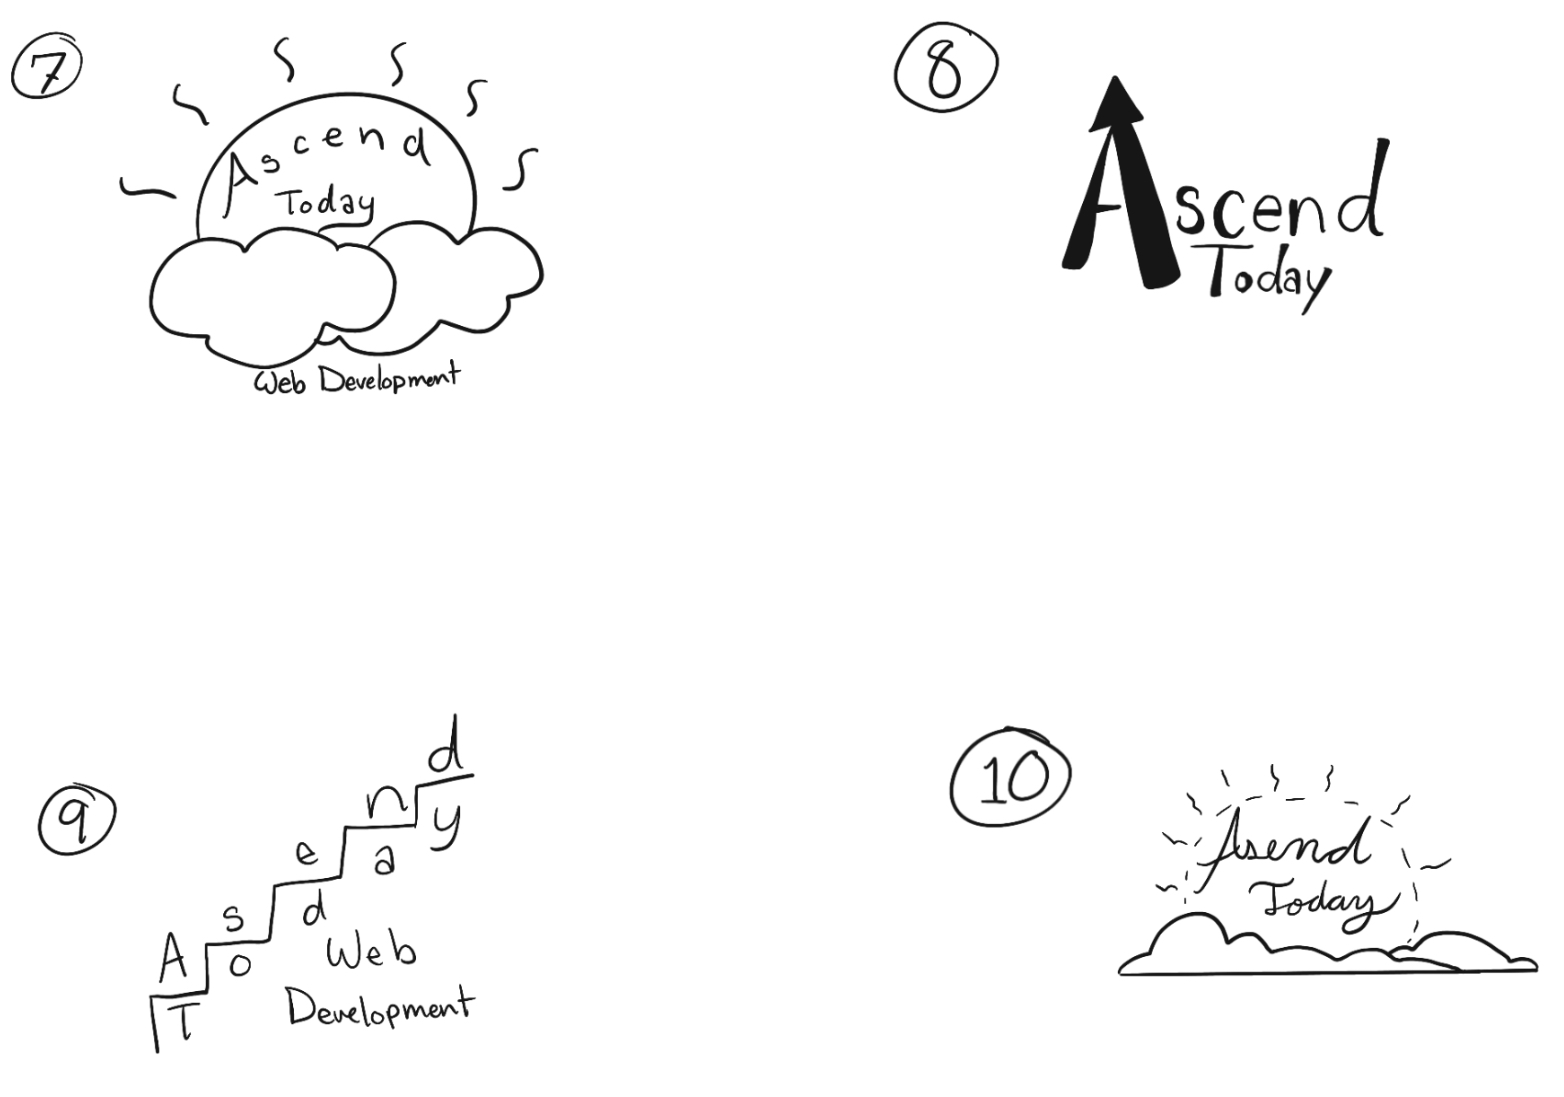 7
Ascend
Today
Web Development
8
Ascend
Today
9
A s e n d
T o d a y
Web
Development
10
Asend
Today